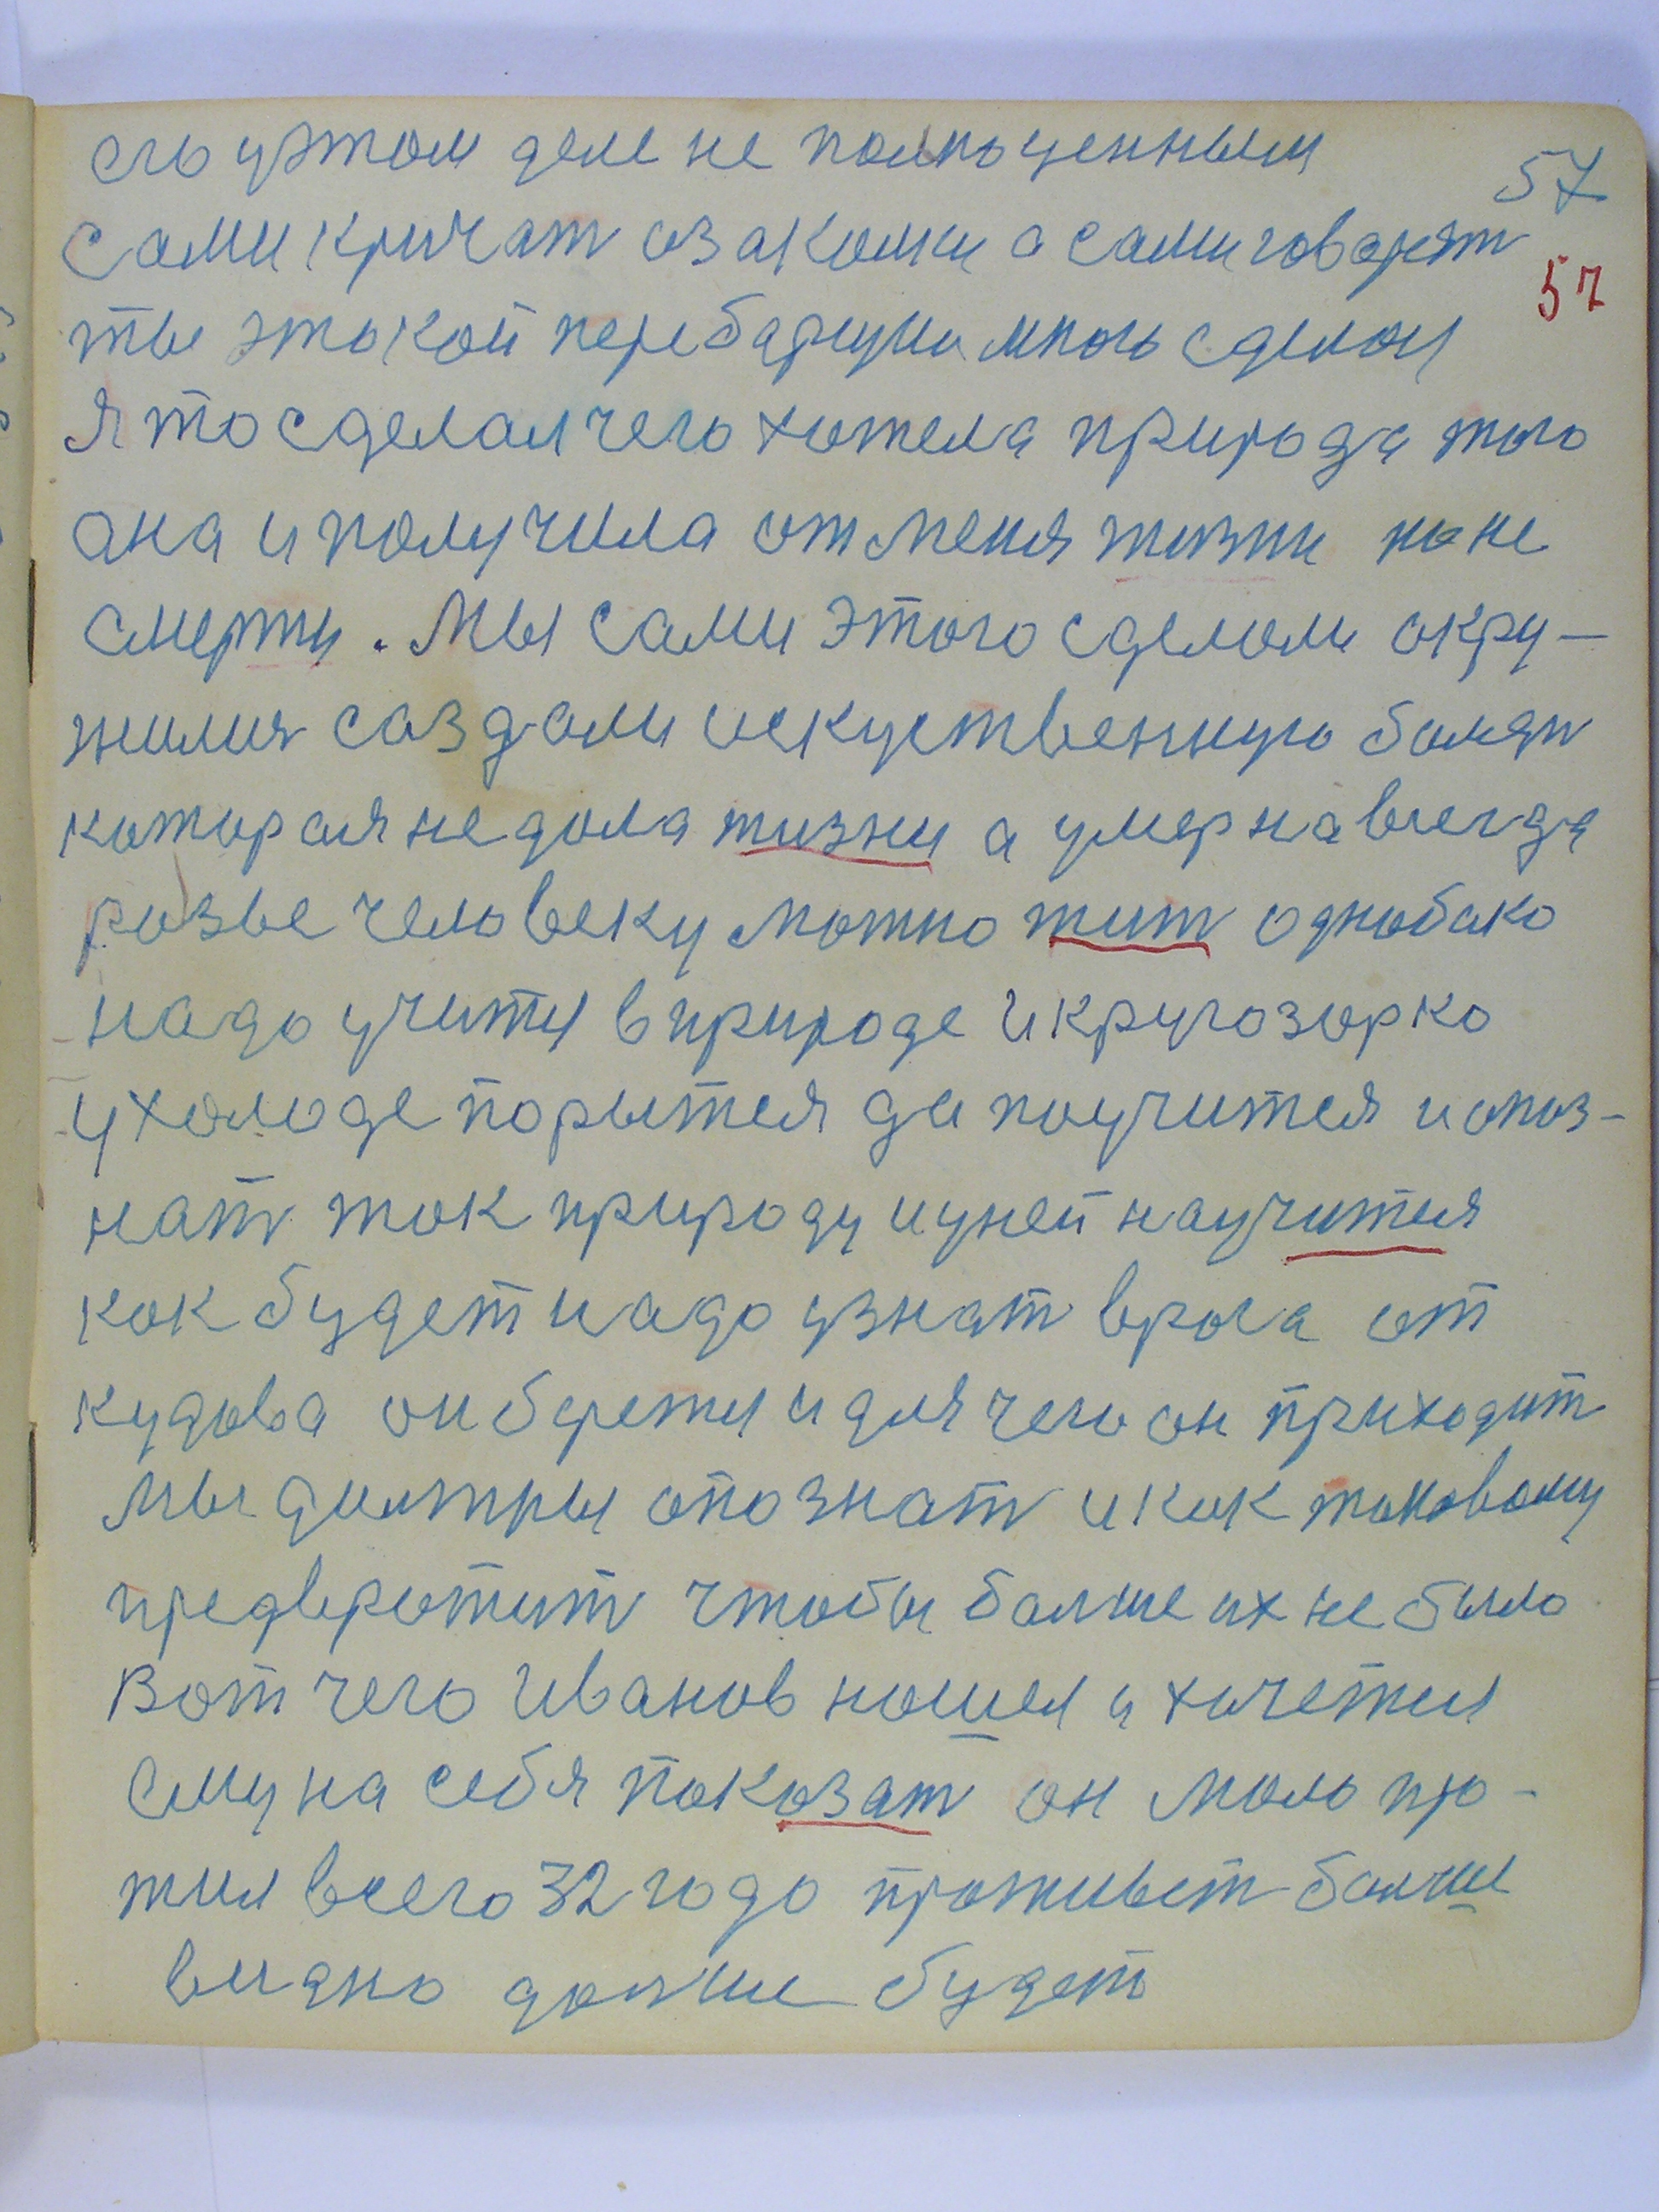 его уэтом деле не полноценным
57
сами кричат азаконы а сами говорят
57
ты этокой перебаришь много сделал
Я то сделал чего хотела природа того
она и получила от меня жизни но не
смерти. Мы сами этого сделали окру-
жились создали искуственную болезн
которая не дала жизни а умер навсегда
розве человеку можно жит однобоко
надо учится в природе и кругозорко
у холоде порытся да поучится и опоз-
нат ток природу и уней научится
как будет надо узнат врага от
кудова он берется и для чего он приходит
мы должны опознат и как таковому
предвротит чтобы болше их не было
Вот чего Иванов нашел и хочется
ему на себя показат он мало про-
жил всего 32 года проживет болше
видно далше будет